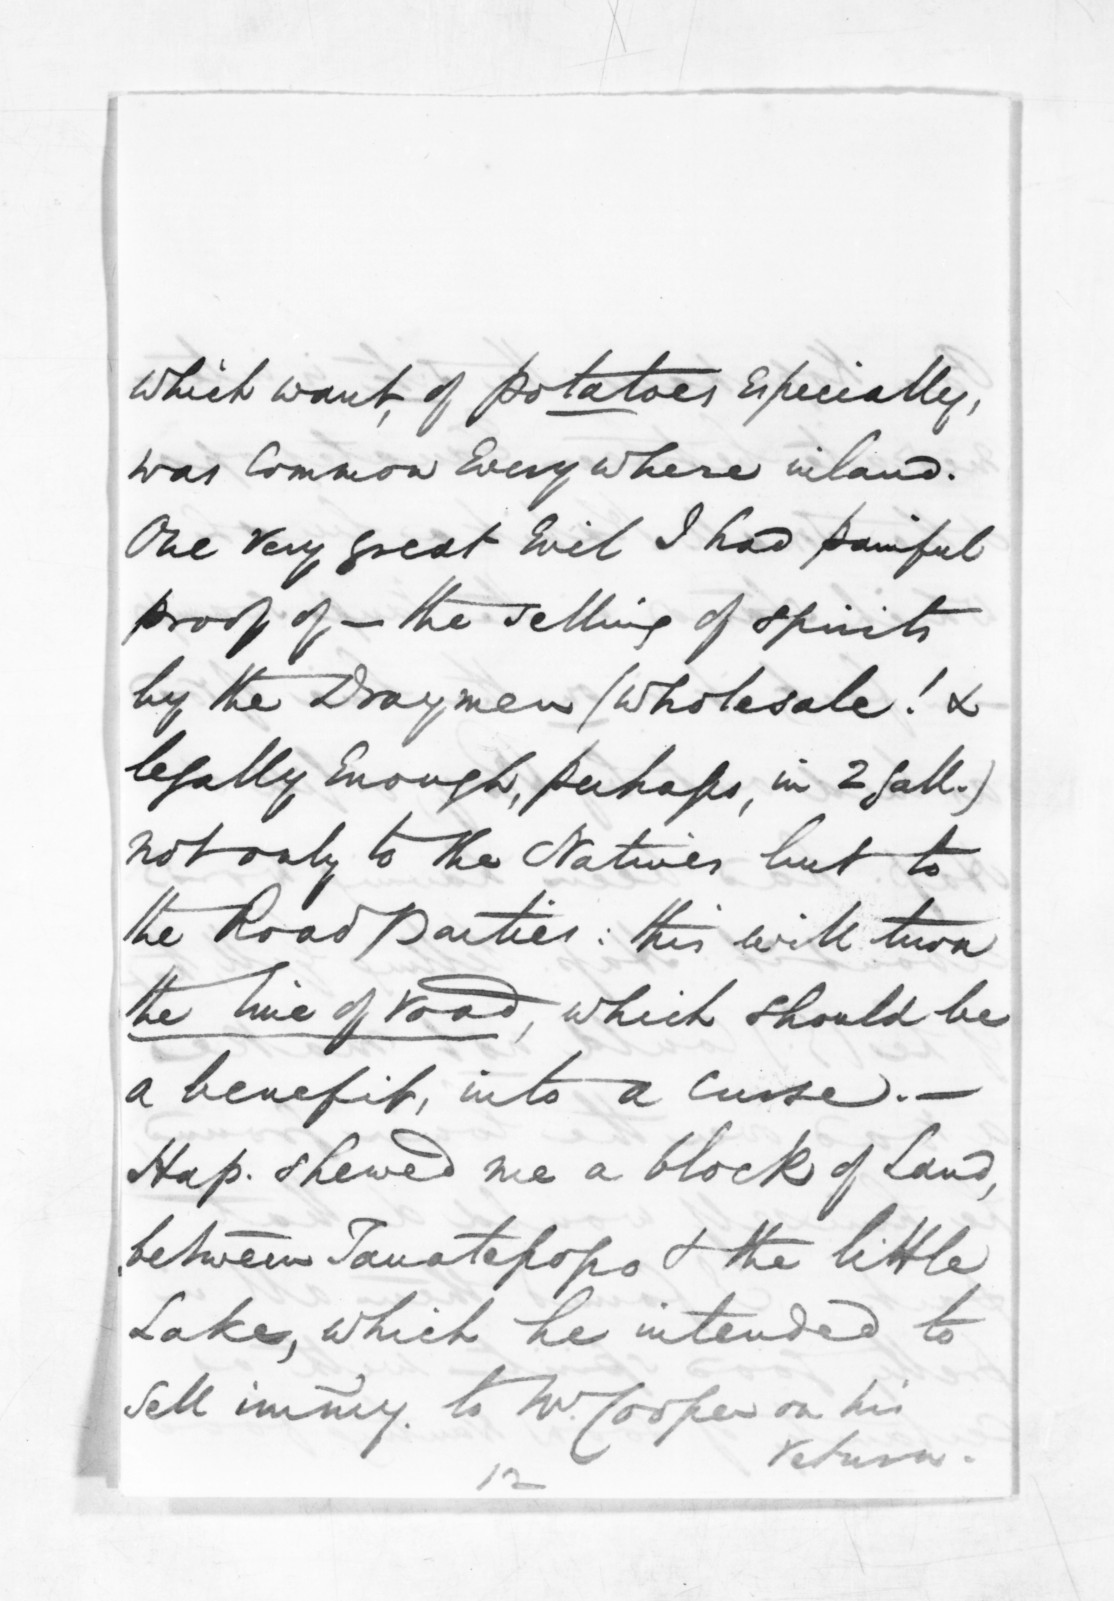 which want, of potatoes especially,
was common Everywhere inland.
One very great Evil I had painful
proof of — the selling of spirits
by the Draymen (wholesale! &
legally Enough, perhaps, in 2 gall.)
not only to the Natives but to
the Road Parties: this will turn
the line of road, which should be
a benefit, into a curse. —
Hap. shewed me a block of Land,
between Tauatepopo & the little
Lake, which he intended to
sell immy. to W. Cooper on his
return.
12